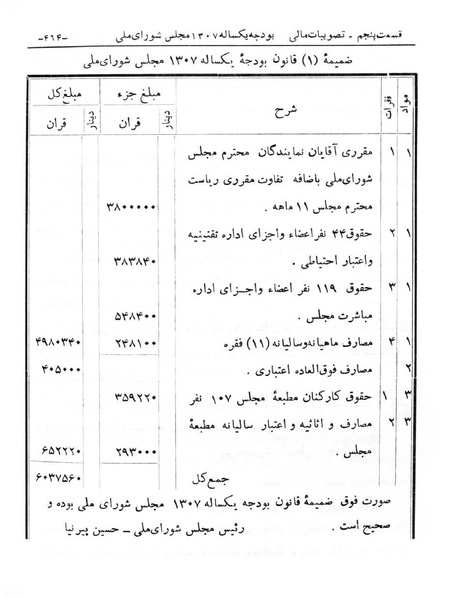 قسمت پنجم - تصویبات مالی    بودجه یکساله ۱۳۰۷ مجلس شورای ملی    -۴۶۴-
ضمیمهٔ (۱) قانون بودجهٔ یکساله ۱۳۰۷ مجلس شورای ملی
مواد    فقرات    شرح    مبلغ جزء    مبلغ کل
دینار    قران    دینار    قران
۱    ۱    مقرری آقایان نمایندگان محترم مجلس
شورای ملی باضافه تفاوت مقرری ریاست
محترم مجلس ۱۱ ماهه .    ۳۸۰۰۰۰۰
۱    ۲    حقوق ۴۴ نفر اعضاء و اجزای اداره تقنینیه
و اعتبار احتیاطی .    ۳۸۳۸۴۰
۱    ۳    حقوق ۱۱۹ نفر اعضاء و اجزای اداره
مباشرت مجلس .    ۵۴۸۴۰۰
۱    ۴    مصارف ماهیانه و سالیانه (۱۱) فقره    ۲۴۸۱۰۰    ۴۹۸۰۳۴۰
۲    مصارف فوق العاده اعتباری .    ۴۰۵۰۰۰
۳    ۱    حقوق کارکنان مطبعهٔ مجلس ۱۰۷ نفر    ۳۵۹۲۲۰
۳    ۲    مصارف و اثاثیه و اعتبار سالیانه مطبعهٔ
مجلس .    ۲۹۳۰۰۰    ۶۵۲۲۲۰
جمع کل    ۶۰۳۷۵۶۰
صورت فوق ضمیمهٔ قانون بودجه یکساله ۱۳۰۷ مجلس شورای ملی بوده و
صحیح است .    رئیس مجلس شورای ملی – حسین پیرنیا